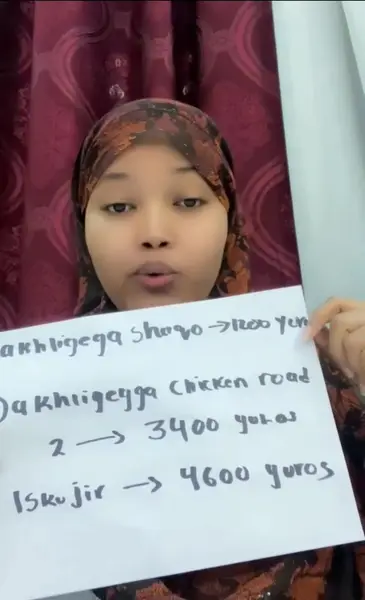 akhligega shaqo → 1200 yur
Dakhligeyga chicken road
2 → 3400 yuros
Iskujir → 4600 yuros